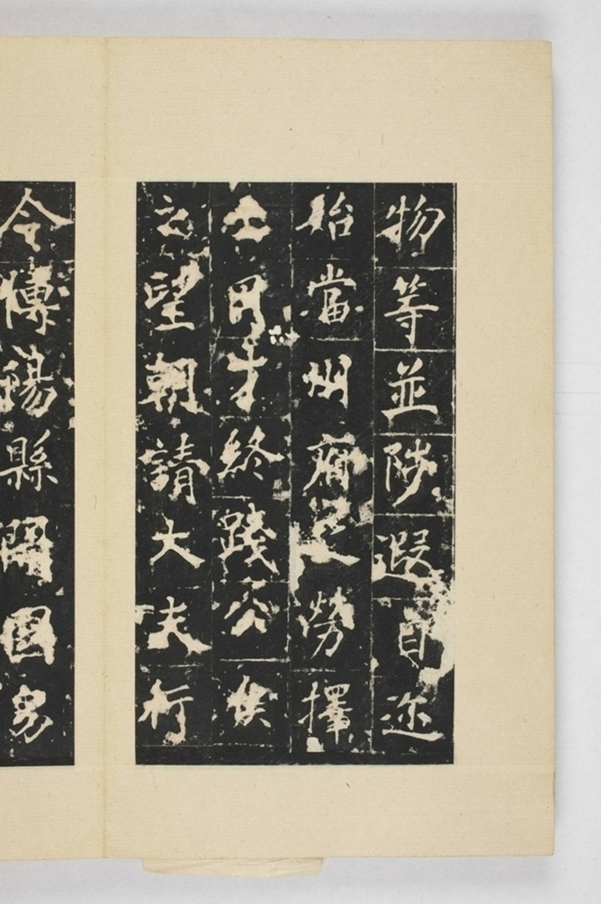 物等並陟遐自迩
始當州府之勞擇
士同才終踐公侯
之望朝請大夫行
令博陽縣開國男